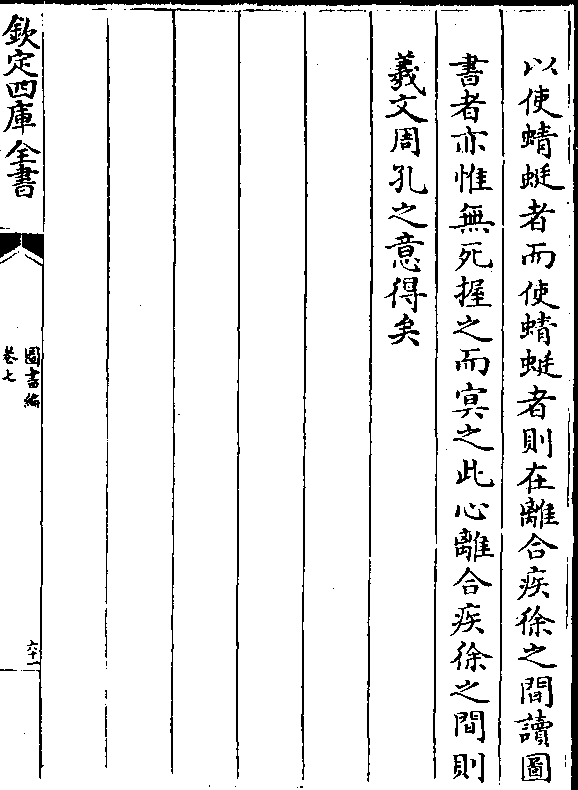 以使蜻蜓者而使蜻蜓者則在離合疾徐之間讀圖
書者亦惟無死握之而㝠之此心離合疾徐之間則
羲文周孔之意得矣
欽定四庫全書
圖書編
卷七
六十一